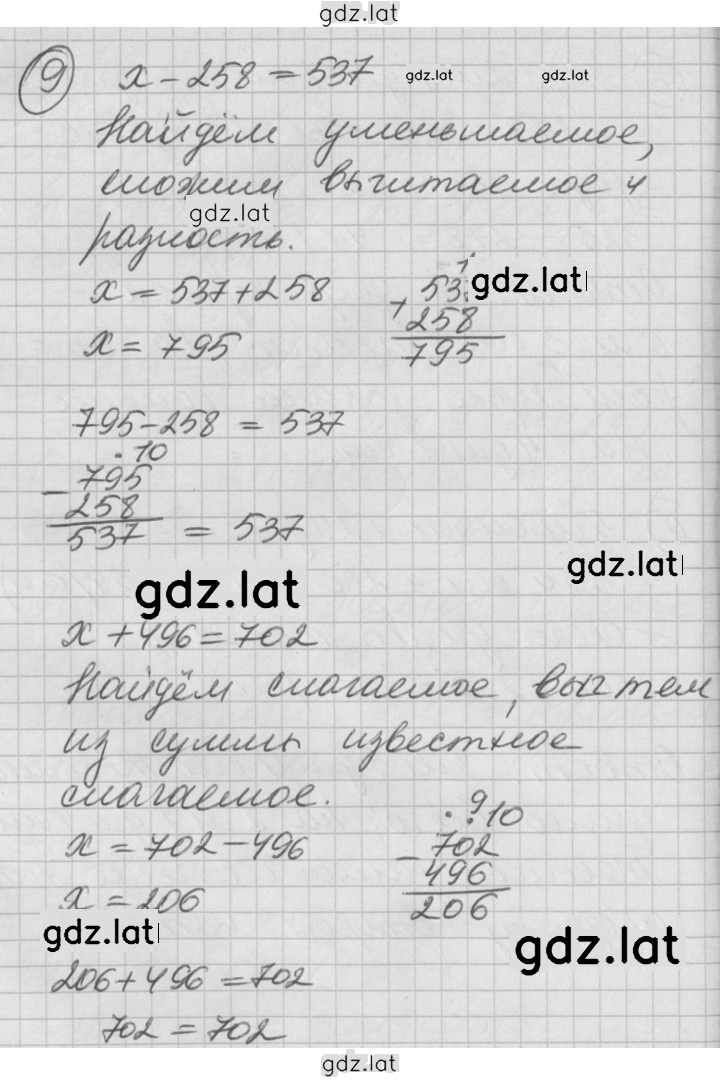 gdz.lat
9 x - 258 = 537 gdz.lat gdz.lat
Найдём уменьшаемое,
сложим вычитаемое и
gdz.lat
разность.
x = 537 + 258
1
+ 53 gdz.lat
258
x = 795
795
795 - 258 = 537
. 10
- 795
258
537 = 537
gdz.lat
gdz.lat
x + 496 = 702
Найдём слагаемое, вычтем
из суммы известное
слагаемое.
x = 702 - 496
. 9
. 10
- 702
496
206
x = 206
gdz.lat
gdz.lat
206 + 496 = 702
702 = 702
gdz.lat